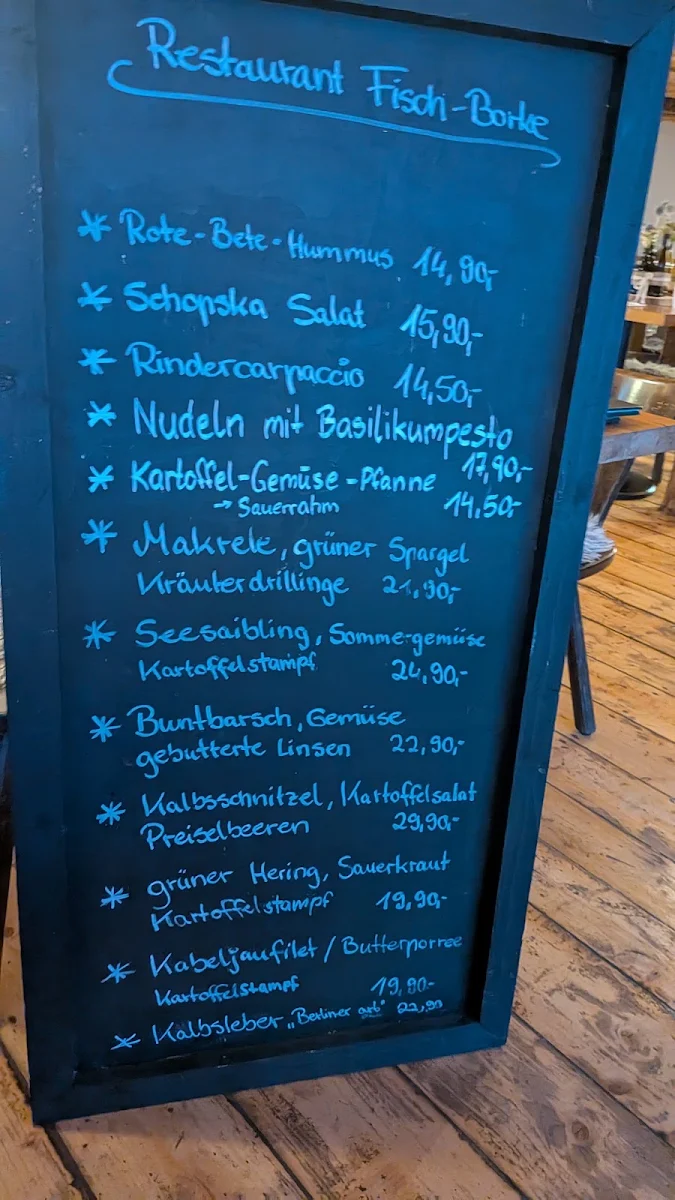 Restaurant Fisch-Borke
* Rote-Bete-Hummus 14,90,-
* Schopska Salat 15,90,-
* Rindercarpaccio 14,50,-
* Nudeln mit Basilikumpesto
17,90,-
* Kartoffel-Gemüse-Pfanne 14,50,-
→ Sauerrahm
* Makrele, grüner Spargel
Kräuterdrillinge 21,90,-
* Seesaibling, Sommergemüse
Kartoffelstampf 24,90,-
* Buntbarsch, Gemüse
gebutterte Linsen 22,90,-
* Kalbsschnitzel, Kartoffelsalat
Preiselbeeren 29,90,-
* grüner Hering, Sauerkraut
Kartoffelstampf 19,90,-
* Kabeljaufilet / Butterporree
Kartoffelstampf 19,90-
* Kalbsleber „Berliner 22,90